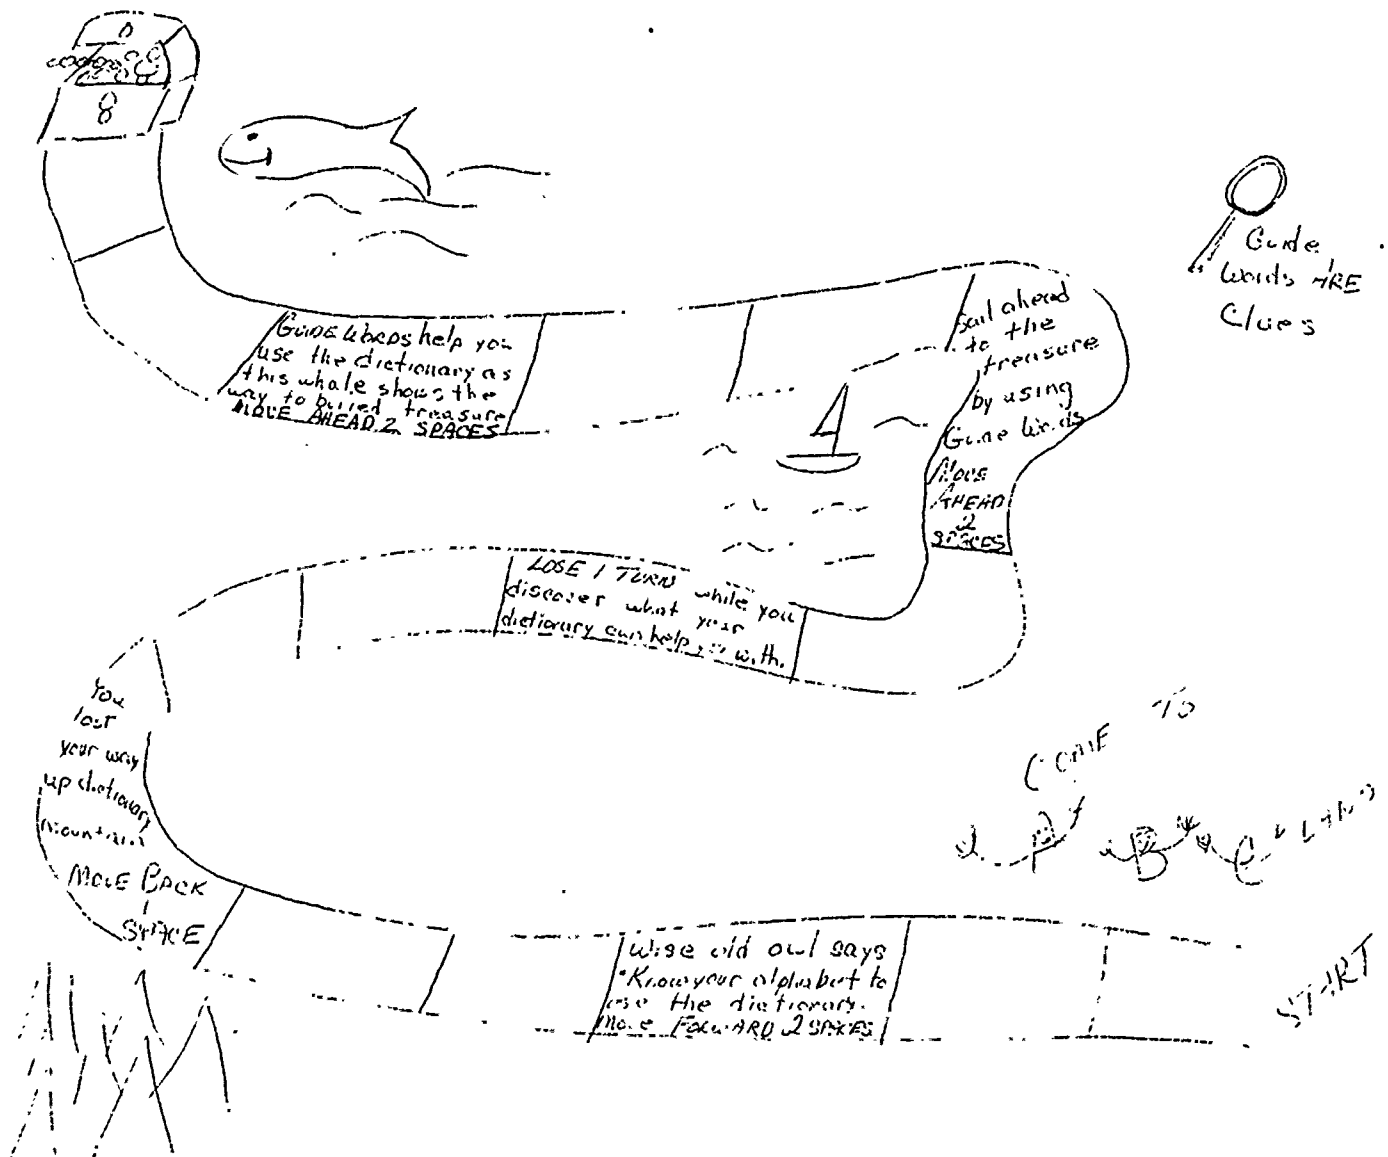 Guide
Words ARE
Clues
GUIDE WORDS help you
use the dictionary as
this whale shows the
way to buried treasure
MOVE AHEAD 2 SPACES
Sail ahead
to the
treasure
by using
Guide Words
MOVE
AHEAD
2
SPACES
LOSE 1 TURN while you
discover what your
dictionary can help you with.
You
lost
your way
up dictionary
mountain
MOVE BACK
1
SPACE
COME TO
A B C LAND
Wise old owl says
"Know your alphabet to
use the dictionary.
Move FORWARD 2 SPACES
START